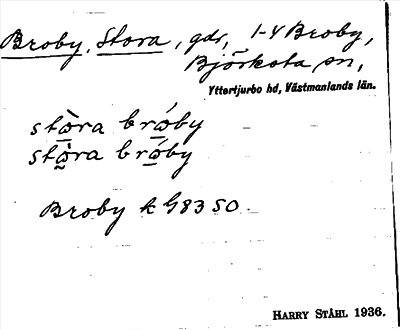 Broby, Stora, gdr, 1-4 Broby,
Björksta sn,
Yttertjurbo hd, Västmanlands län.
stòra bróby
stòra bróby
Broby k G83 SO.
HARRY STÅHL 1936.